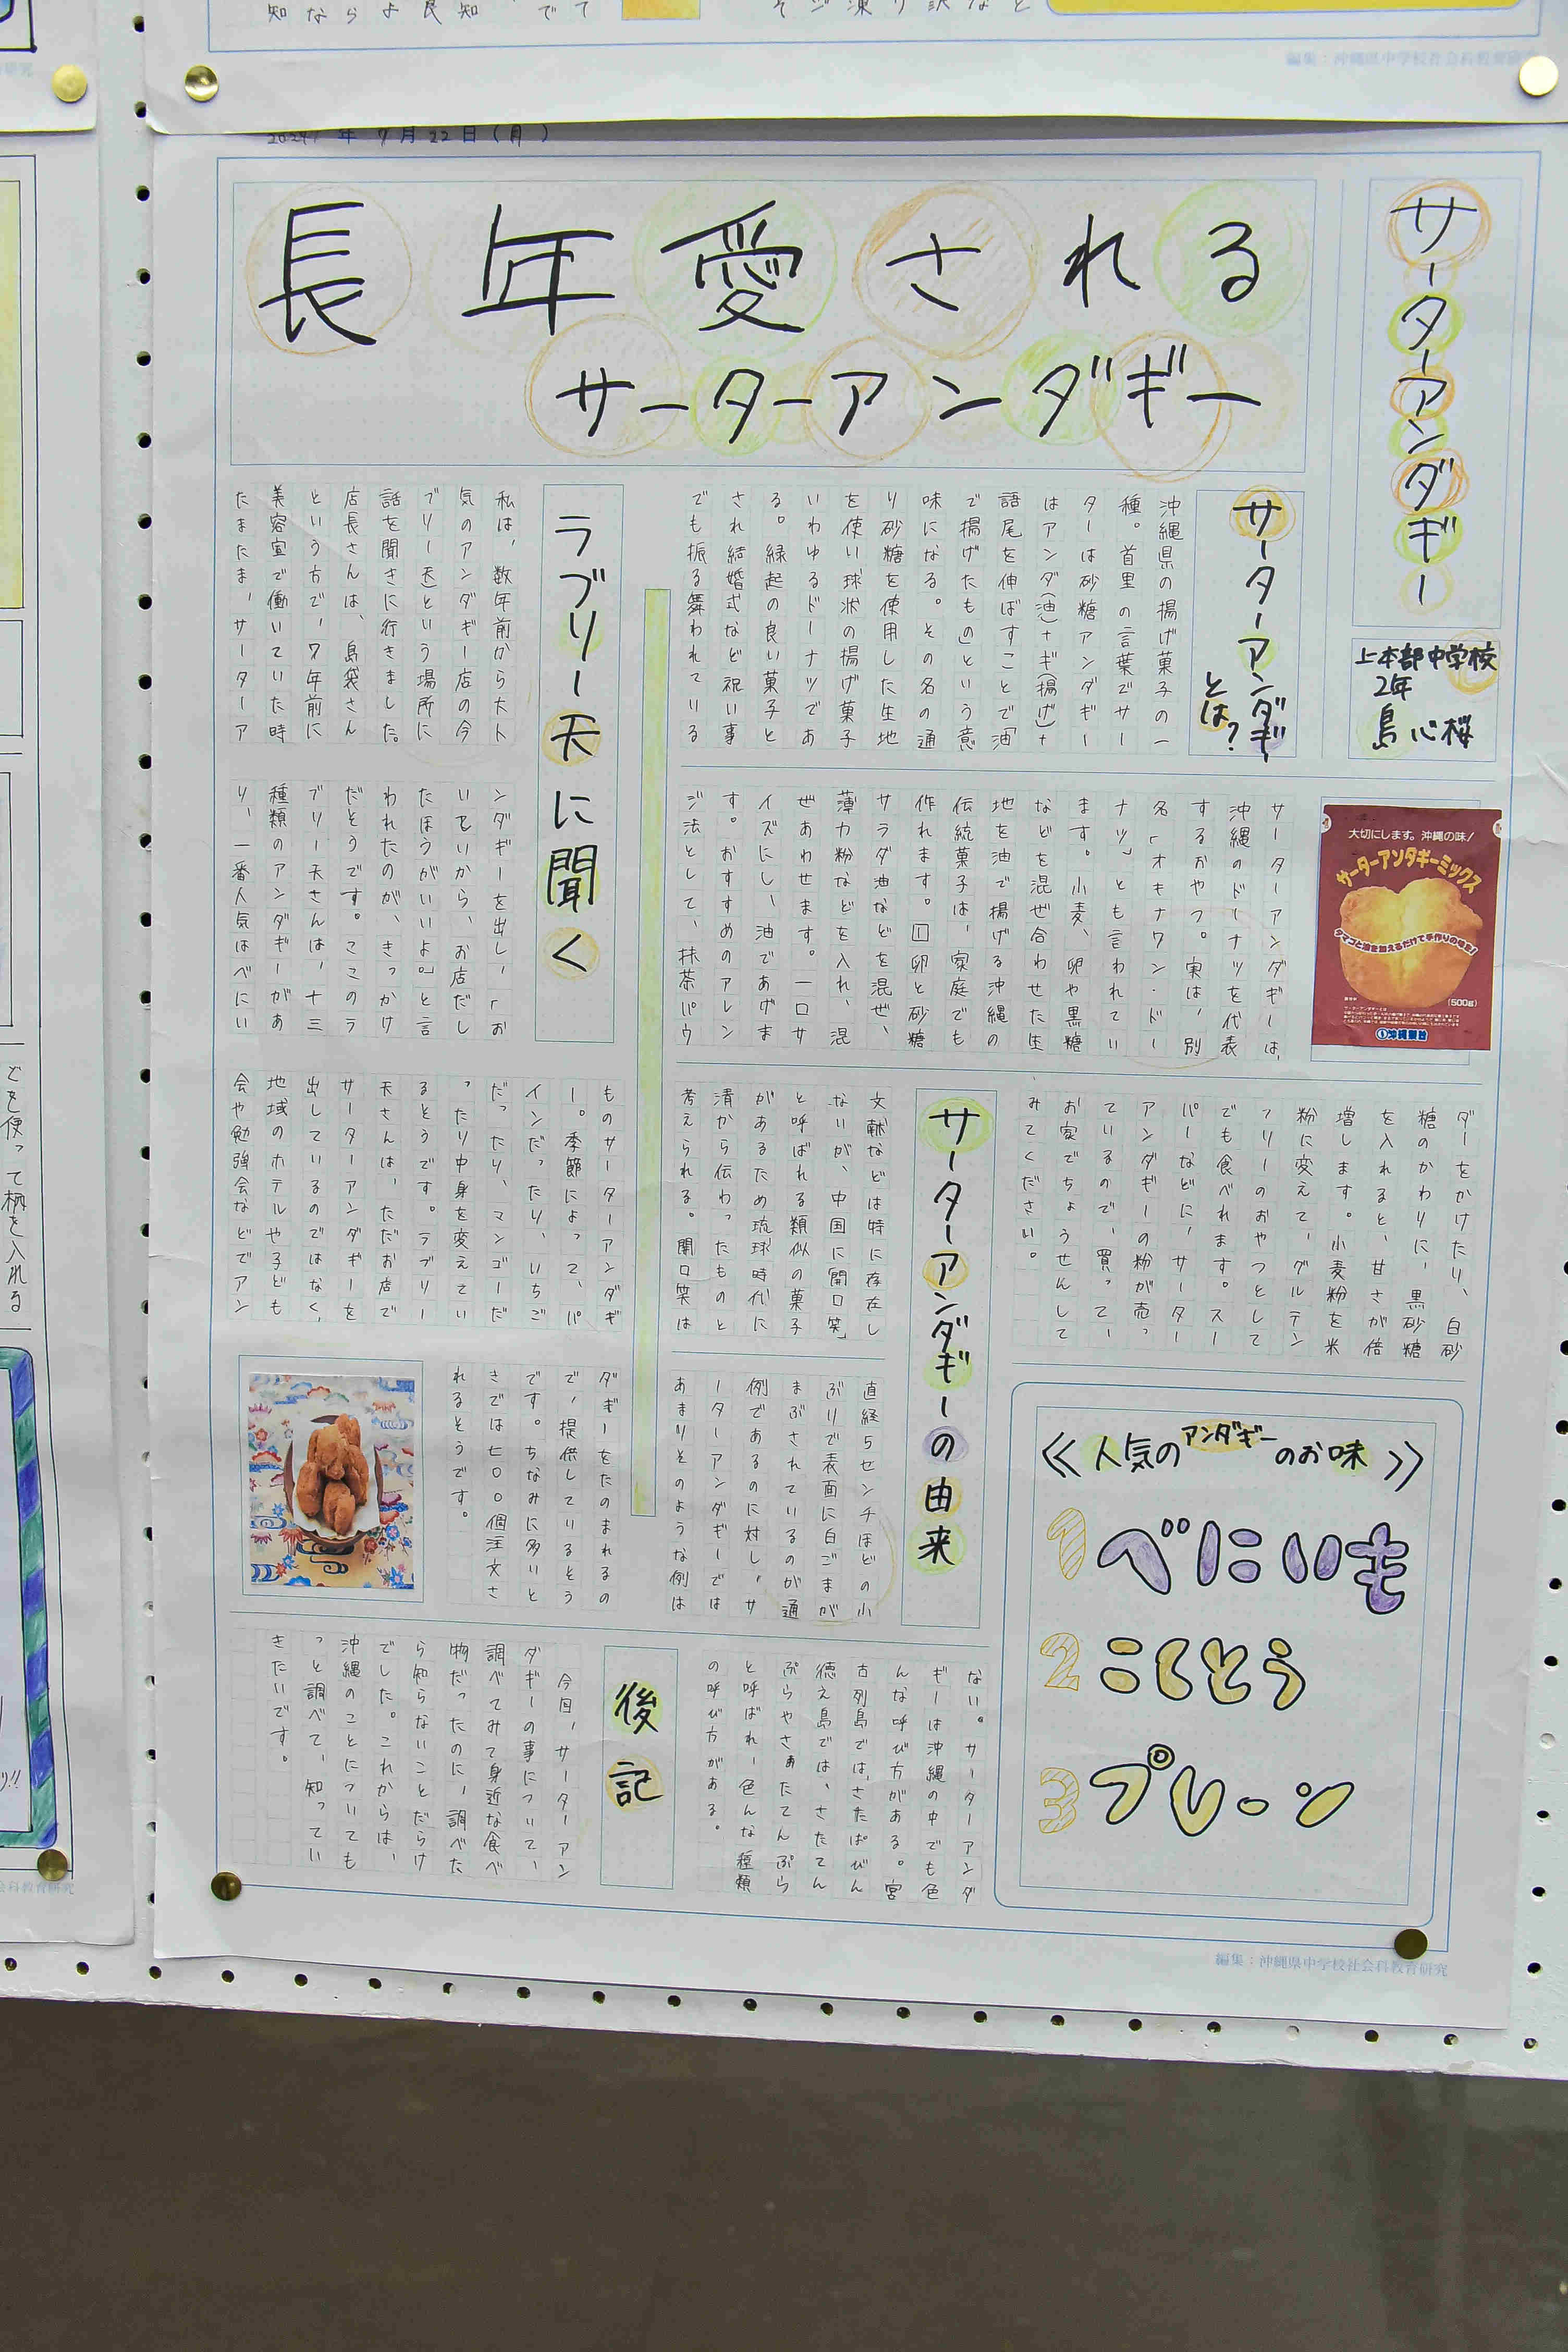 2024年7月22日(月)
サーターアンダギー
上本部中学校
2年
島 心桜
長年愛される
サーターアンダギー
サーターアンダギー
とは?
沖縄県の揚げ菓子の一
種。首里の言葉でサー
ターは砂糖アンダギー
はアンダ(油)+ギ(揚げ)+
語尾を伸ばすことで「油
で揚げたもの」という意
味になる。その名の通
り砂糖を使用した生地
を使い球状の揚げ菓子
いわゆるドーナツであ
る。縁起の良い菓子と
され結婚式など祝い事
でも振る舞われている
サーターアンダギーは、
沖縄のドーナツを代表
するおやつ。実は、別
名「オキナワン・ドー
ナツ」とも言われてい
ます。小麦、卵や黒糖
などを混ぜ合わせた生
地を油で揚げる沖縄の
伝統菓子は、家庭でも
作れます。①卵と砂糖
サラダ油などを混ぜ、
薄力粉などを入れ、混
ぜあわせます。一口サ
イズにし、油であげま
す。おすすめのアレン
ジ法として、抹茶パウ
ダーをかけたり、白砂
糖のかわりに、黒砂糖
を入れると、甘さが倍
増します。小麦粉を米
粉に変えて、グルテン
フリーのおやつとして
でも食べれます。スー
パーなどに、サーター
アンダギーの粉が売っ
ているので、買って、
お家でちょうせんして
みてください。
大切にします。沖縄の味!
サーターアンダギーミックス
タマゴと油を加えるだけで手作りの味!
(500g)
沖縄製粉
サーターアンダギーの由来
文献などは特に存在し
ないが、中国に「開口笑」
と呼ばれる類似の菓子
があるため琉球時代に
清から伝わったものと
考えられる。開口笑は
直経5センチほどの小
ぶりで表面に白ごまが
まぶされているのが通
例であるのに対し、サ
ーターアンダギーでは
あまりそのような例は
ない。サーターアンダ
ギーは沖縄の中でも色
んな呼び方がある。宮
古列島では、さたぱびん
徳え島では、さたてん
ぷらやさぁたてんぷら
と呼ばれ、色んな種類
の呼び方がある。
≪人気のアンダギーのお味≫
1 べにいも
2 こくとう
3 プレーン
ラブリー天に聞く
私は、数年前から大人
気のアンダギー店の「ラ
ブリー天」という場所に
話を聞きに行きました。
店長さんは、島袋さん
という方で、7年前に
美容室で働いていた時
たまたま、サーターア
ンダギーを出し、「お
いしいから、お店だし
たほうがいいよ。」と言
われたのが、きっかけ
だそうです。ここのラ
ブリー天さんは、十三
種類のアンダギーがあ
り、一番人気はべにい
ものサーターアンダギ
ー。季節によって、パ
インだったり、いちご
だったり、マンゴーだ
ったり中身を変えてい
るそうです。ラブリー
天さんは、ただお店で
サーターアンダギーを
出しているのではなく、
地域のホテルや子ども
会や勉強会などでアン
ダギーをたのまれるの
で、提供しているそう
です。ちなみに多いと
きでは七〇〇個注文さ
れるそうです。
後記
今回、サーターアン
ダギーの事について、
調べてみて身近な食べ
物だったのに、調べた
ら知らないことだらけ
でした。これからは、
沖縄のことについても
っと調べて、知ってい
きたいです。
編集:沖縄県中学校社会科教育研究
編集:沖縄県中学校社会科教育研究
どを使って柄を入れる
会科教育研究